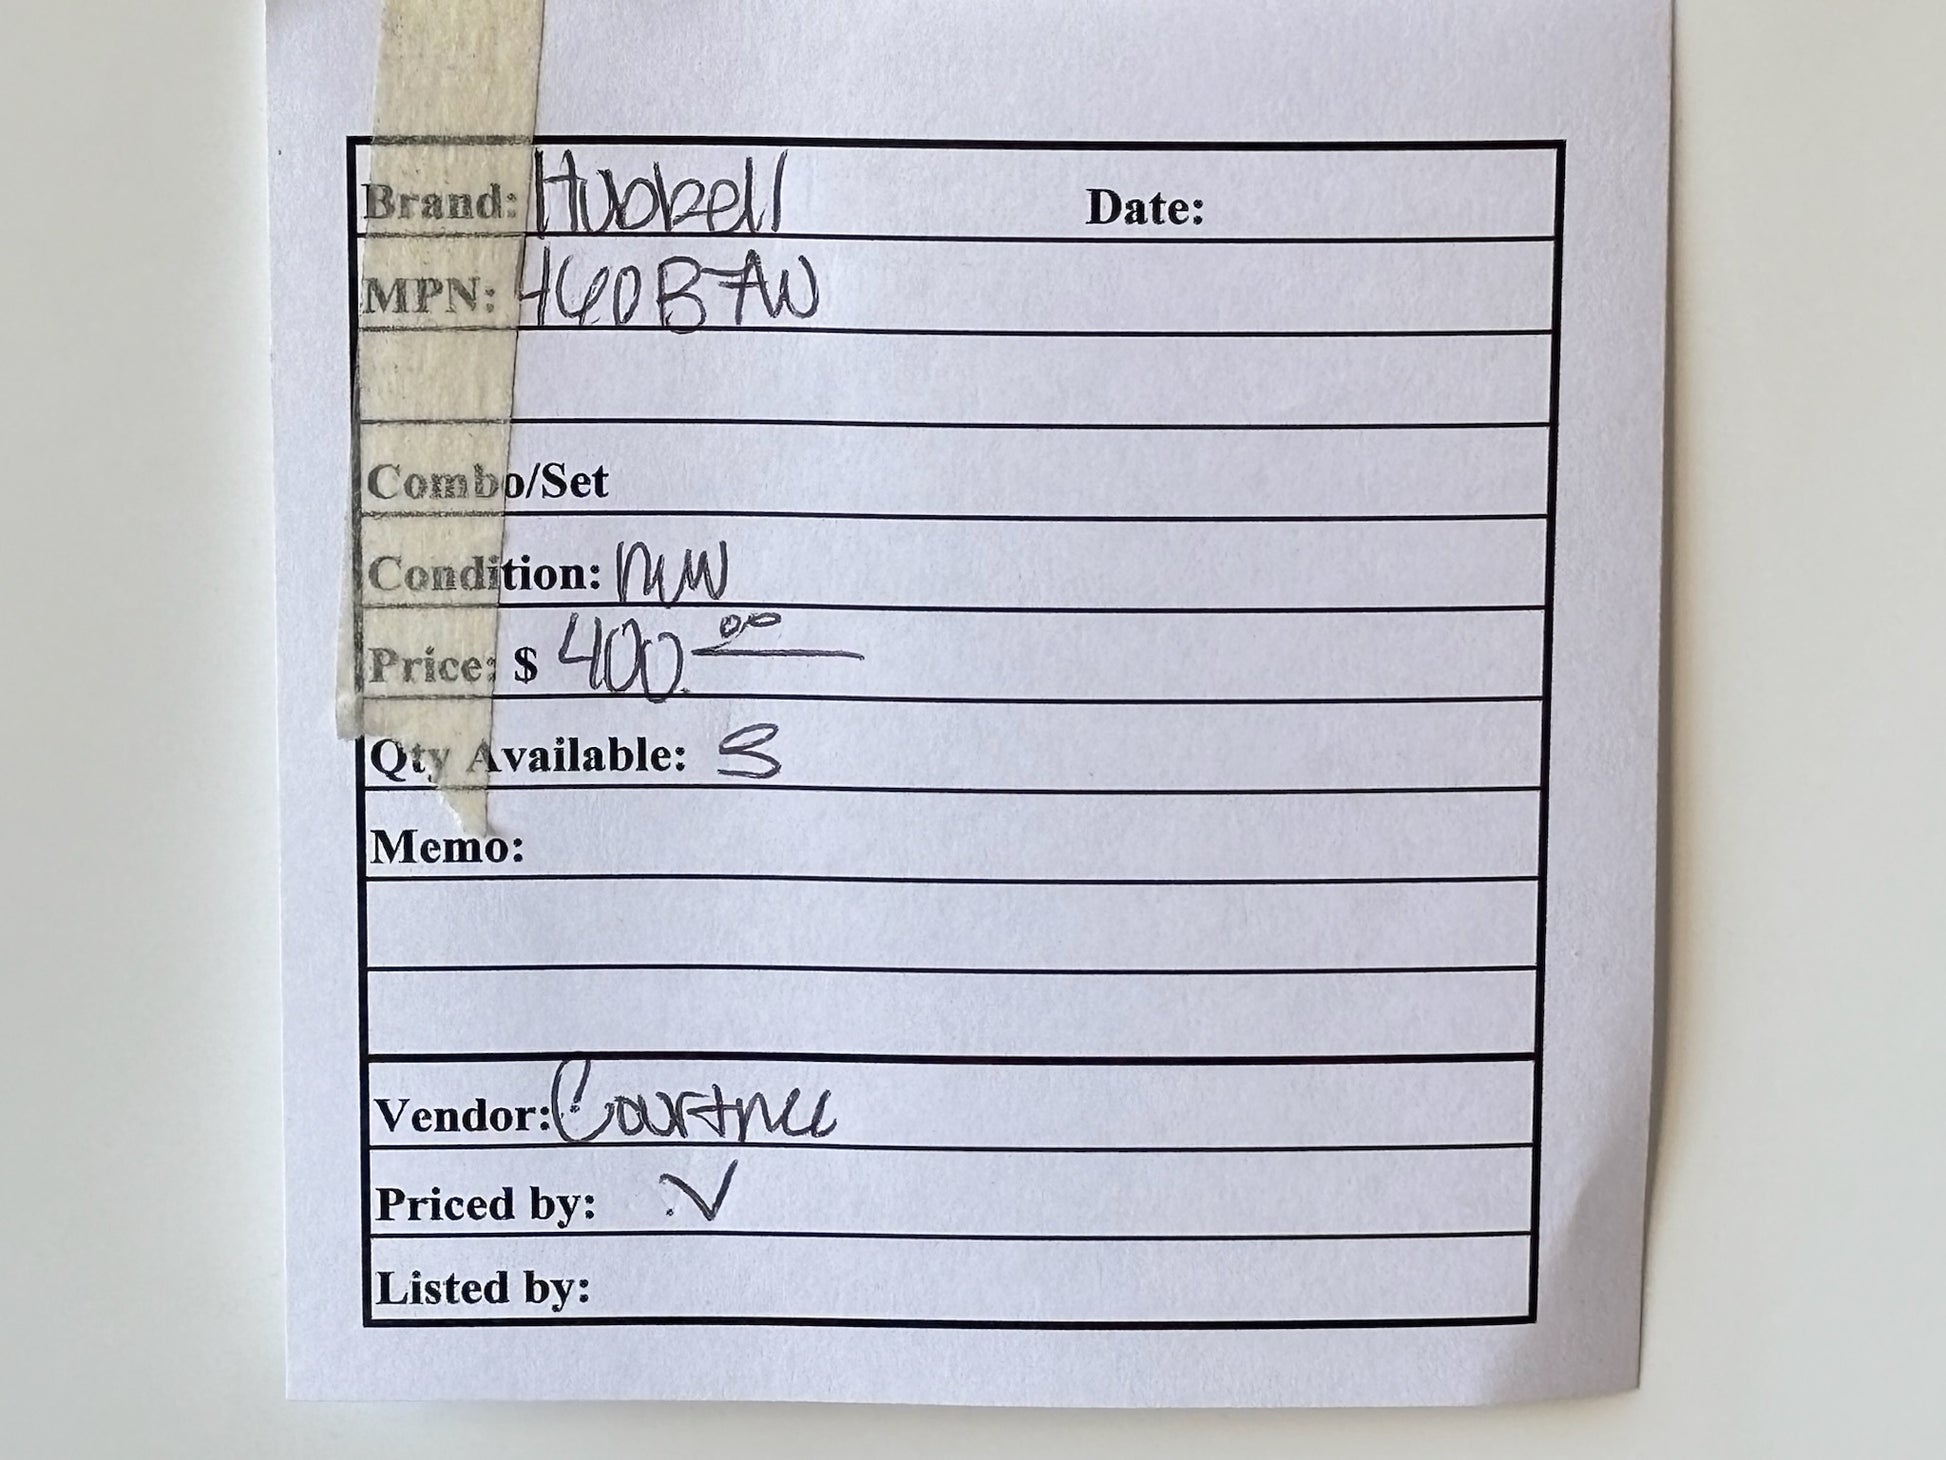 Brand: Hubbell Date:
MPN: 460B7W
Combo/Set
Condition: new
Price: $ 400.00
Qty Available: 3
Memo:
Vendor: Courtnee
Priced by: ✓
Listed by: